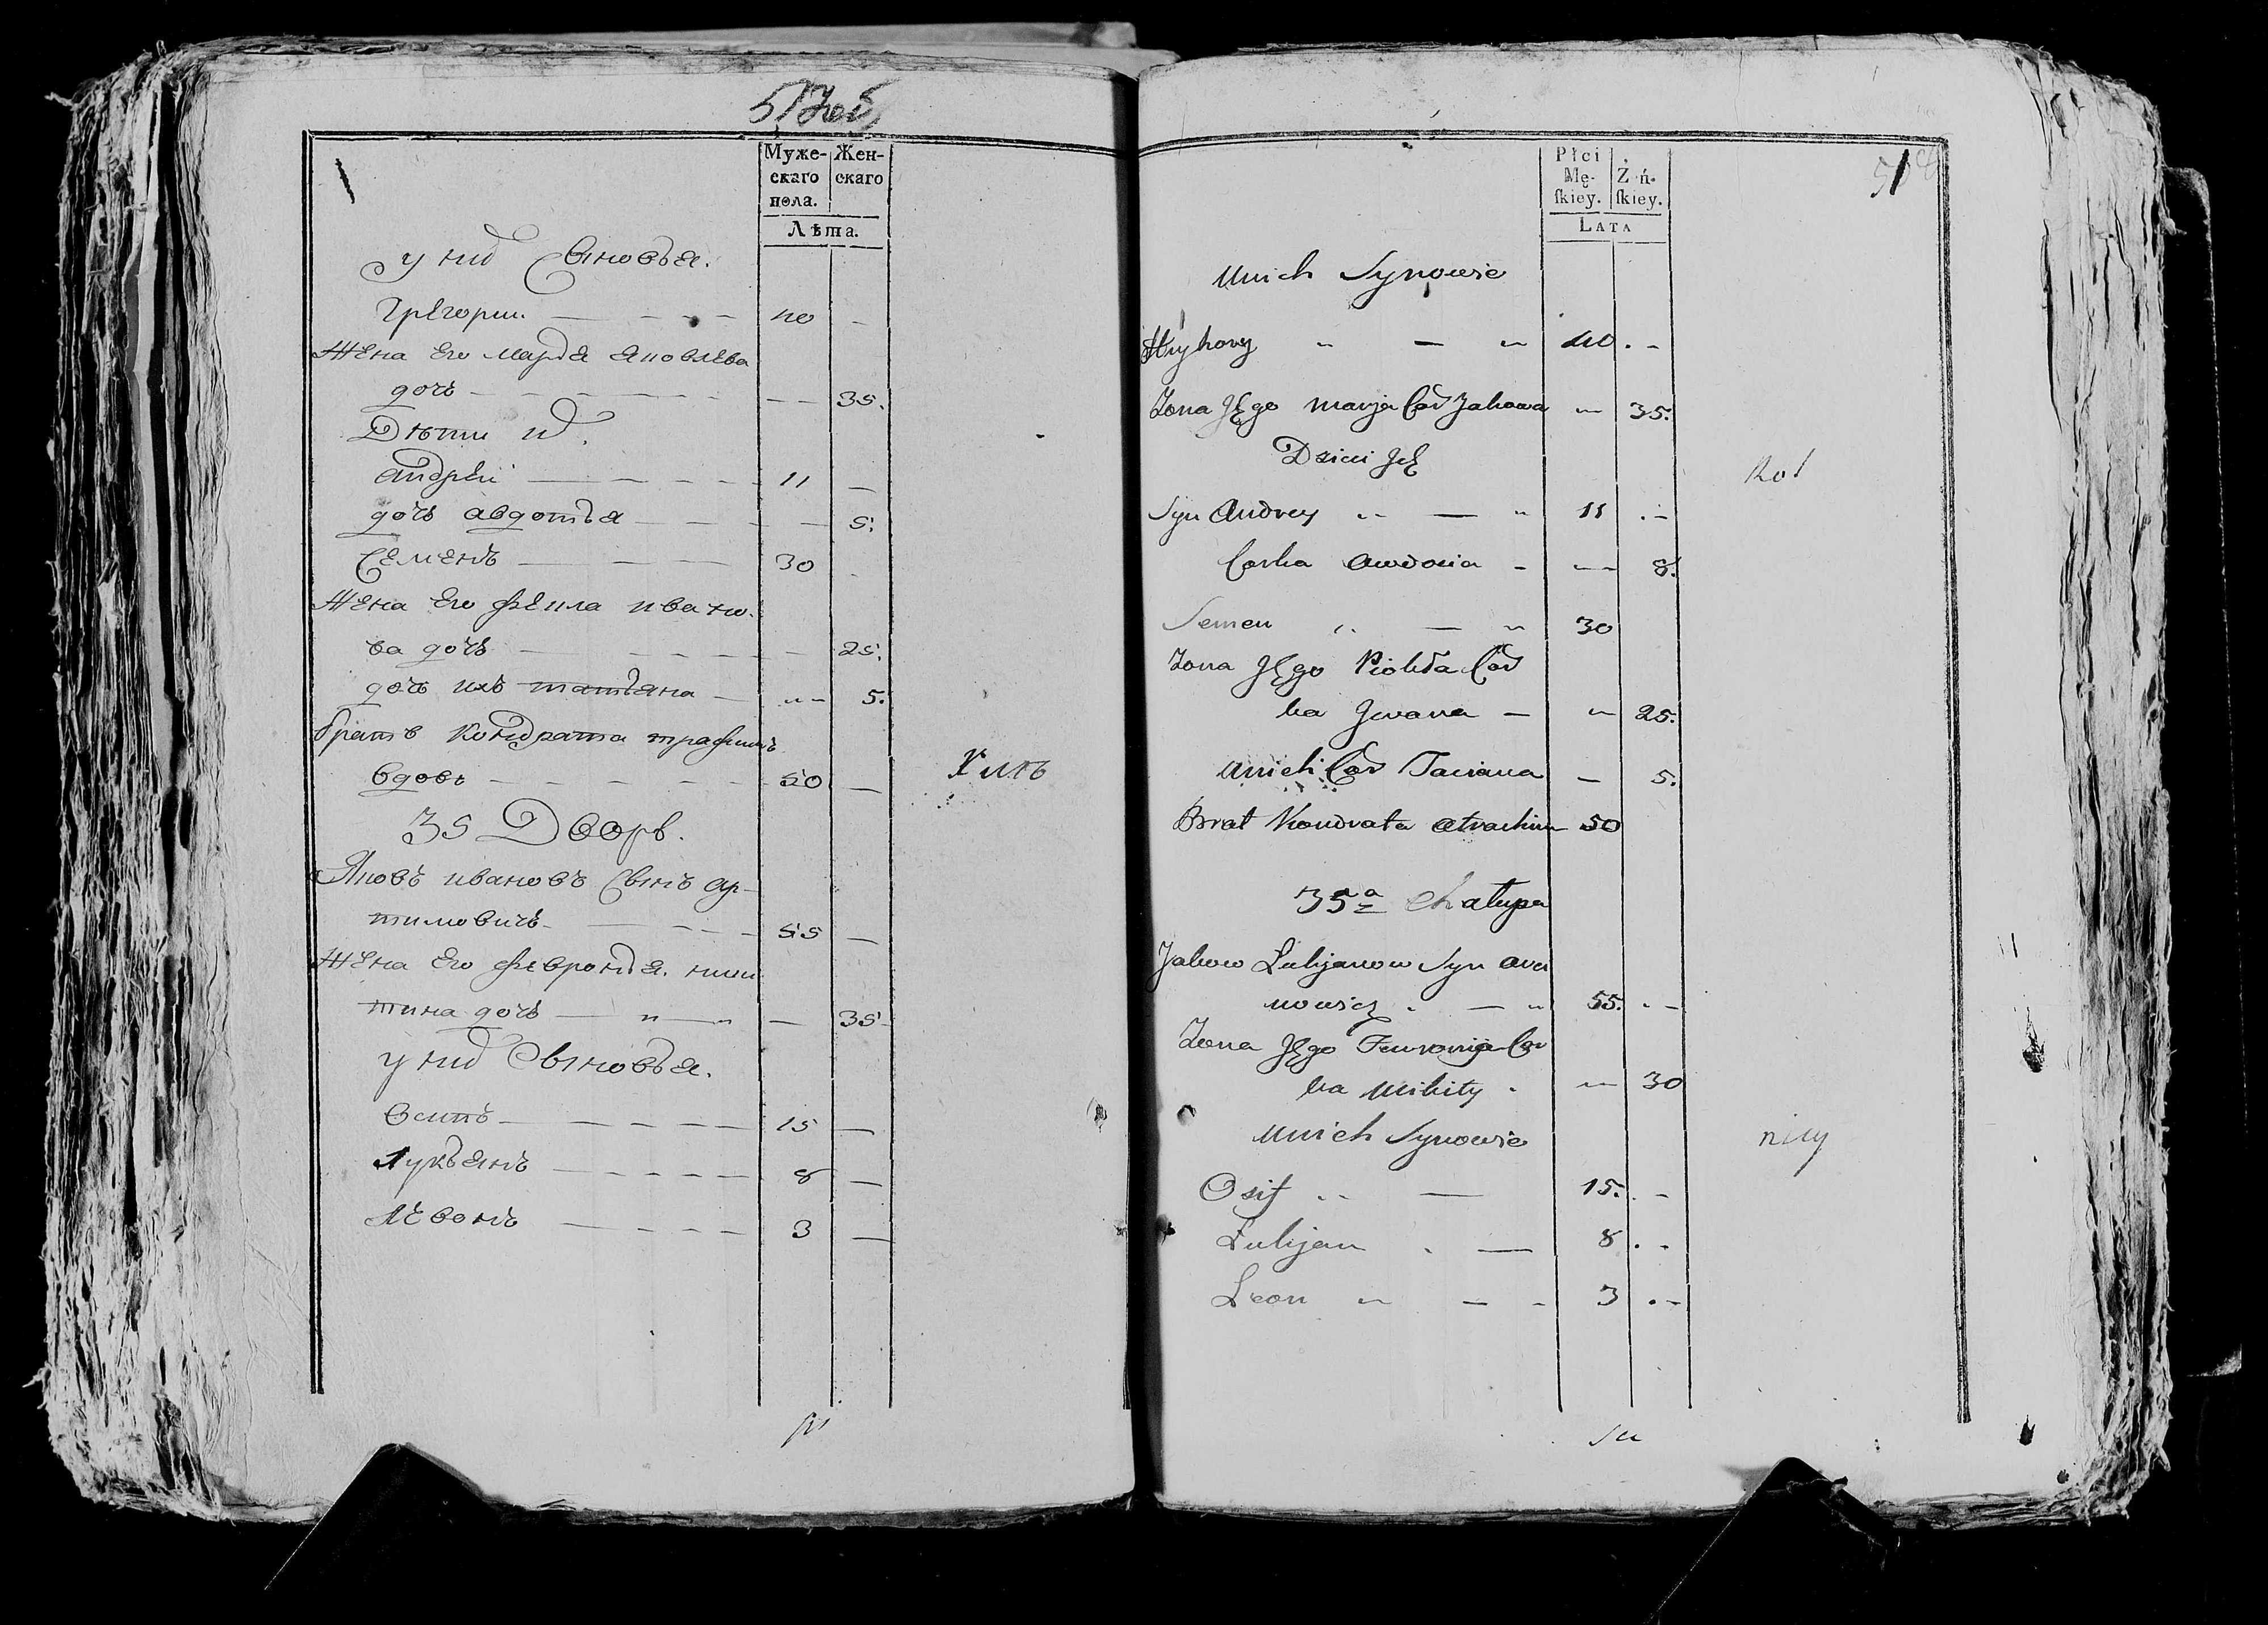 Муже-
скаго
пола.
Жен-
скаго
Лѣта.
у них Сыновья.
Грегорий 40 -
Жена Его марья Яковлева
дочь 35.
Дѣти их.
Андрей 11
дочь авдотья 5.
Семенъ 30
Жена Его фекла ивано-
ва дочь 25.
дочь ихъ татьяна 5.
братъ Кондрата трафимъ
вдовъ 50
35 Дворъ.
Яковъ ивановъ Сынъ ар-
тимовичь 55
Жена Его февронья. ники
тина дочь 35
у них Сыновья.
Осипъ 15
Лукьянъ 8
Левонъ 3
Płci
Mę-
ſkiey.
Żeń-
ſkiey.
LATA
Unich Synowie
Hryhory 40
Żona Jego Marja Cor Jakowa 35.
Dzieci Jch
Syn Andrey 11
Corka Awdosia 8.
Semen 30
Żona Jego Fiokła Cor
ka Jwana 25.
Unich Cor Taciana 5.
Brat Kondrata Atrachim 50
35a chałupa
Jakow Łukjanow Syn
nowicz 55.
Żona Jego Fewronja Cor
ka Mikity 30
Unich Synowie
Osif 15.
Łukjan 8
Leon 3